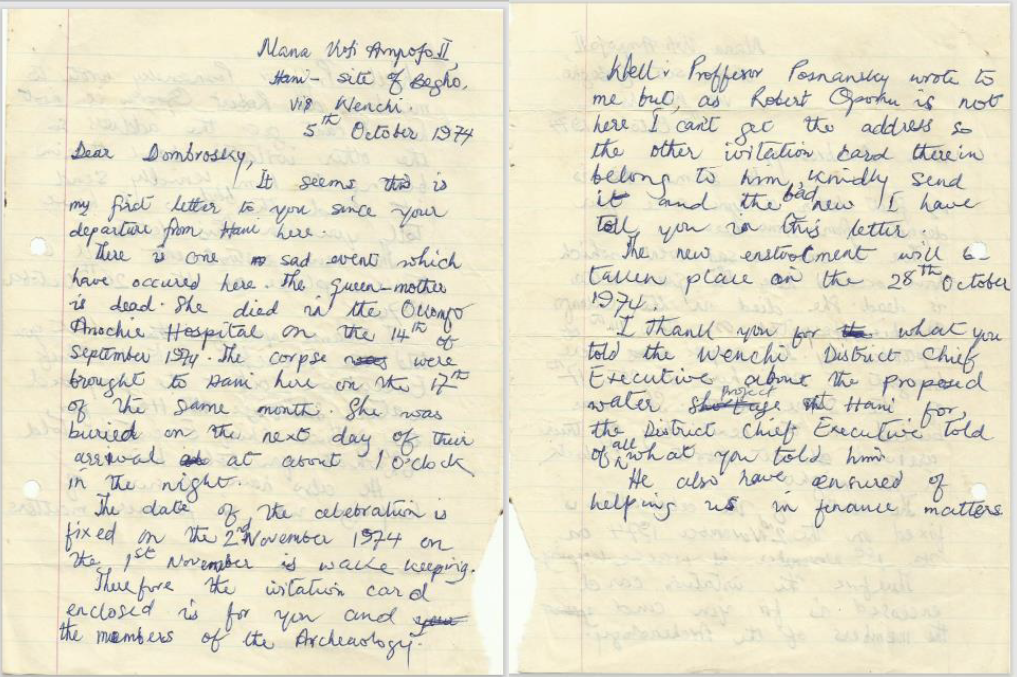 Nana Kofi Ampofo II,
Hani- Site of Begho,
via Wenchi.
5th October 1974
Dear Dombrosky,
It seems this is
my first letter to you since your
departure from Hani here.
There is one sad event which
have occured here. The Queen-mother
is dead. She died in the
Anochie Hospital on the 14th of
September 1974. The corpse were
brought to Hani here on the 17th
of the same month. She was
buried on the next day of their
arrival at about 1 O'clock
in the night.
The date of the celebration is
fixed on the 2nd November 1974 on
the 1st November is wake keeping.
Therefore the ivitation card
enclosed is for you and
the members of the Archeaology.
Well. Proffesor Posnansky wrote to
me but, as Robert Opoku is not
here I can't get the address so
the other ivitation card therein
belong to him, kindly send
it and the bad new I have
tell you in this letter.
The new enstoolment will be
taken place on the 28th October
1974.
I thank you for what you
told the Wenchi District Chief
Executive about the proposed
water project at Hani for,
the District Chief Executive told
of all what you told him.
He also have ensured of
helping us in finance matters.